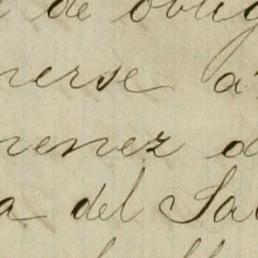 de oblig
nerse á
menez d
a del Sal